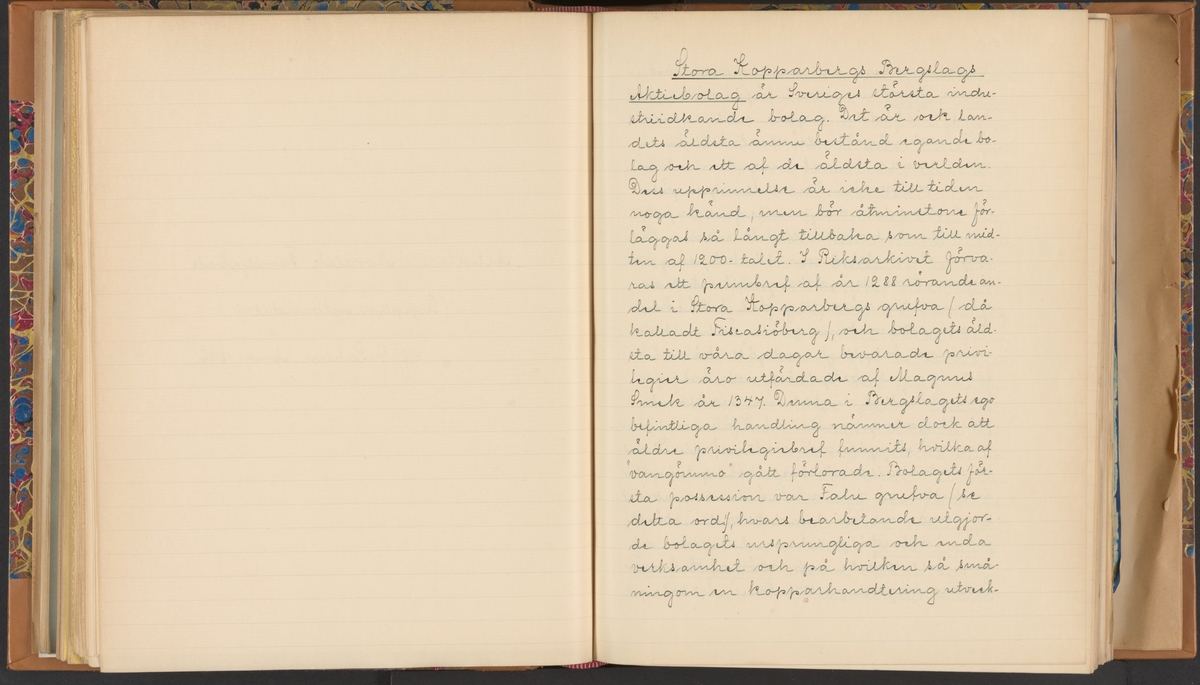 Stora Kopparbergs Bergslags
Aktiebolag är Sveriges största indu-
striidkande bolag. Det är ock lan-
dets äldsta ännu bestånd egande bo-
lag och ett af de äldsta i verlden.
Dess upprinnelse är icke till tiden
noga känd, men bör åtminstone för-
läggas så långt tillbaka som till mid-
ten af 1200-talet. I Riksarkivet förva-
ras ett permbref af år 1288 rörande an-
del i Stora Kopparbergs grufva (då
kalladt Tiscasiöberg), och bolagets äld-
sta till våra dagar bevarade privi-
legier äro utfärdade af Magnus
Smek år 1347. Denna i Bergslagets ego
befintliga handling nämner dock att
äldre privilegiebref funnits, hvilka af
"vangömmo" gått förlorade. Bolagets för-
sta possession var Falu grufva (se
detta ord), hvars bearbetande utgjor-
de bolagets ursprungliga och enda
verksamhet och på hvilken så små-
ningom en kopparhandtering utveck-